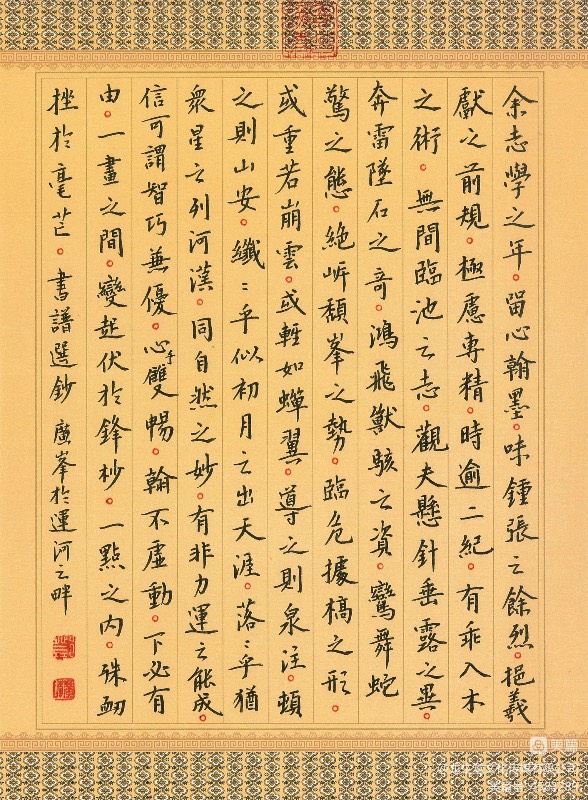 余志學之年。留心翰墨。味鍾張之餘烈。挹羲
獻之前規。極慮專精。時逾二紀。有乖入木
之術。無間臨池之志。觀夫懸針垂露之異。
奔雷墜石之奇。鴻飛獸駭之資。鸞舞蛇
驚之態。絕岸頹峯之勢。臨危據槁之形。
或重若崩雲。或輕如蟬翼。導之則泉注。頓
之則山安。纖〻乎似初月之出天涯。落〻乎猶
衆星之列河漢。同自然之妙。有非力運之能成。
信可謂智巧兼優。心手雙暢。翰不虛動。下必有
由。一畫之間。變起伏於鋒杪。一點之內。殊衂
挫於毫芒。書譜選鈔 廣峯於運河之畔
美篇